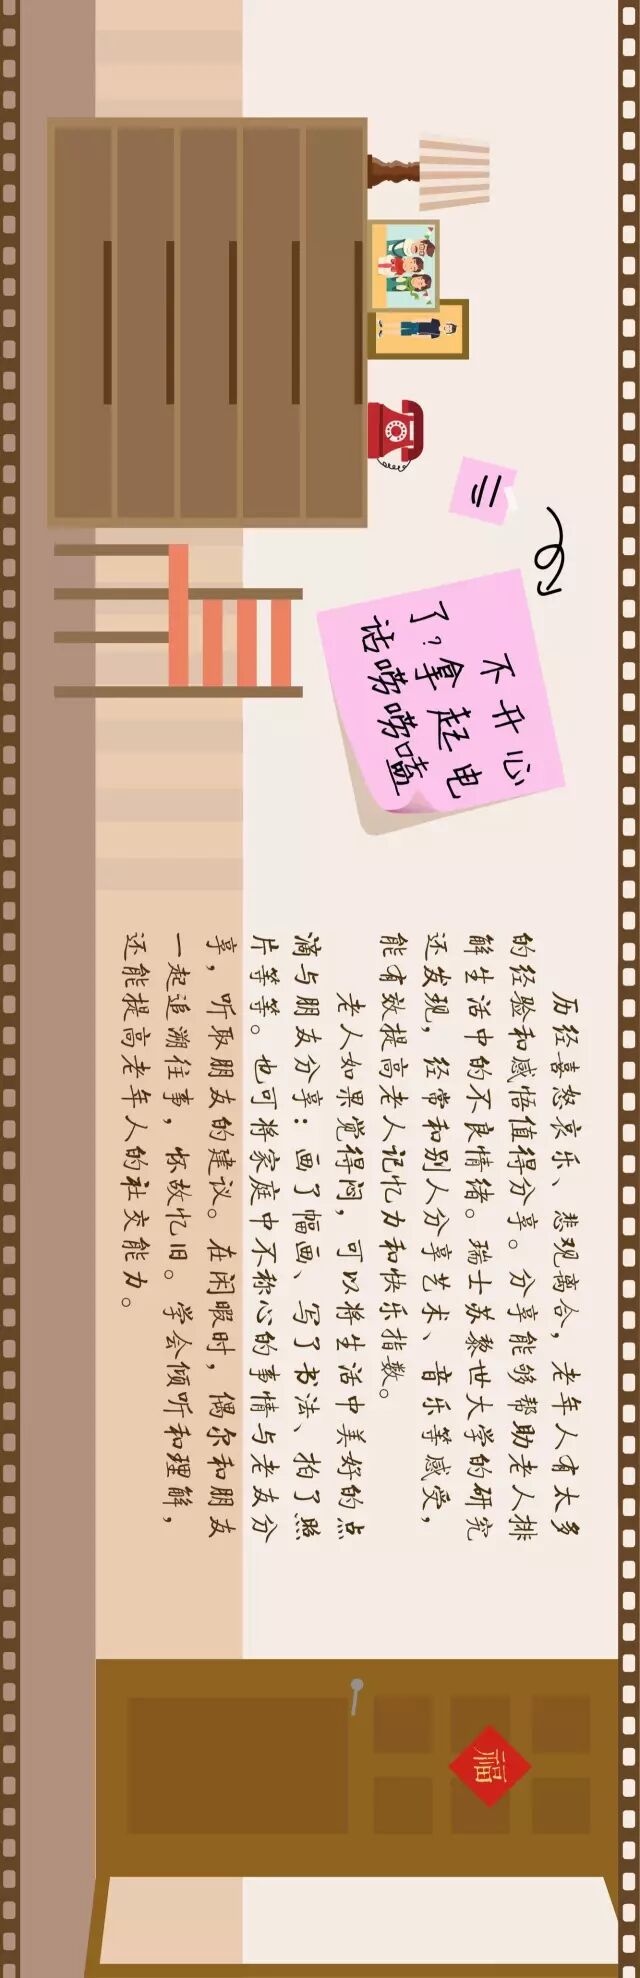 二
不开心
了？拿起电
话唠唠嗑
历经喜怒哀乐、悲观离合，老年人有太多
的经验和感悟值得分享。分享能够帮助老人排
解生活中的不良情绪。瑞士苏黎世大学的研究
还发现，经常和别人分享艺术、音乐等感受，
能有效提高老人记忆力和快乐指数。
老人如果觉得闷，可以将生活中美好的点
滴与朋友分享：画了幅画、写了书法、拍了照
片等等。也可将家庭中不称心的事情与老友分
享，听取朋友的建议。在闲暇时，偶尔和朋友
一起追溯往事，怀故忆旧。学会倾听和理解，
还能提高老年人的社交能力。
福